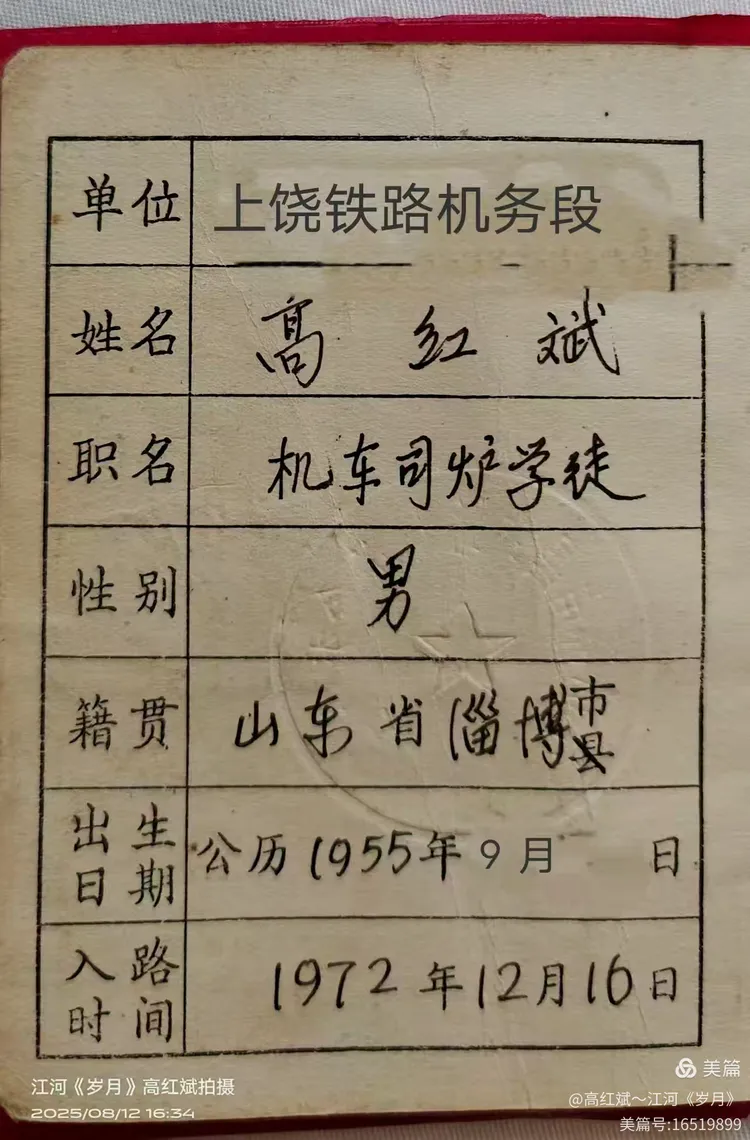 单位 上饶铁路机务段
姓名 高红斌
职名 机车司炉学徒
性别 男
籍贯 山东省淄博市县
出生日期 公历1955年9月 日
入路时间 1972年12月16日
美篇
江河《岁月》高红斌拍摄
@高红斌～江河《岁月》
2025/08/12 16:34
美篇号:16519899